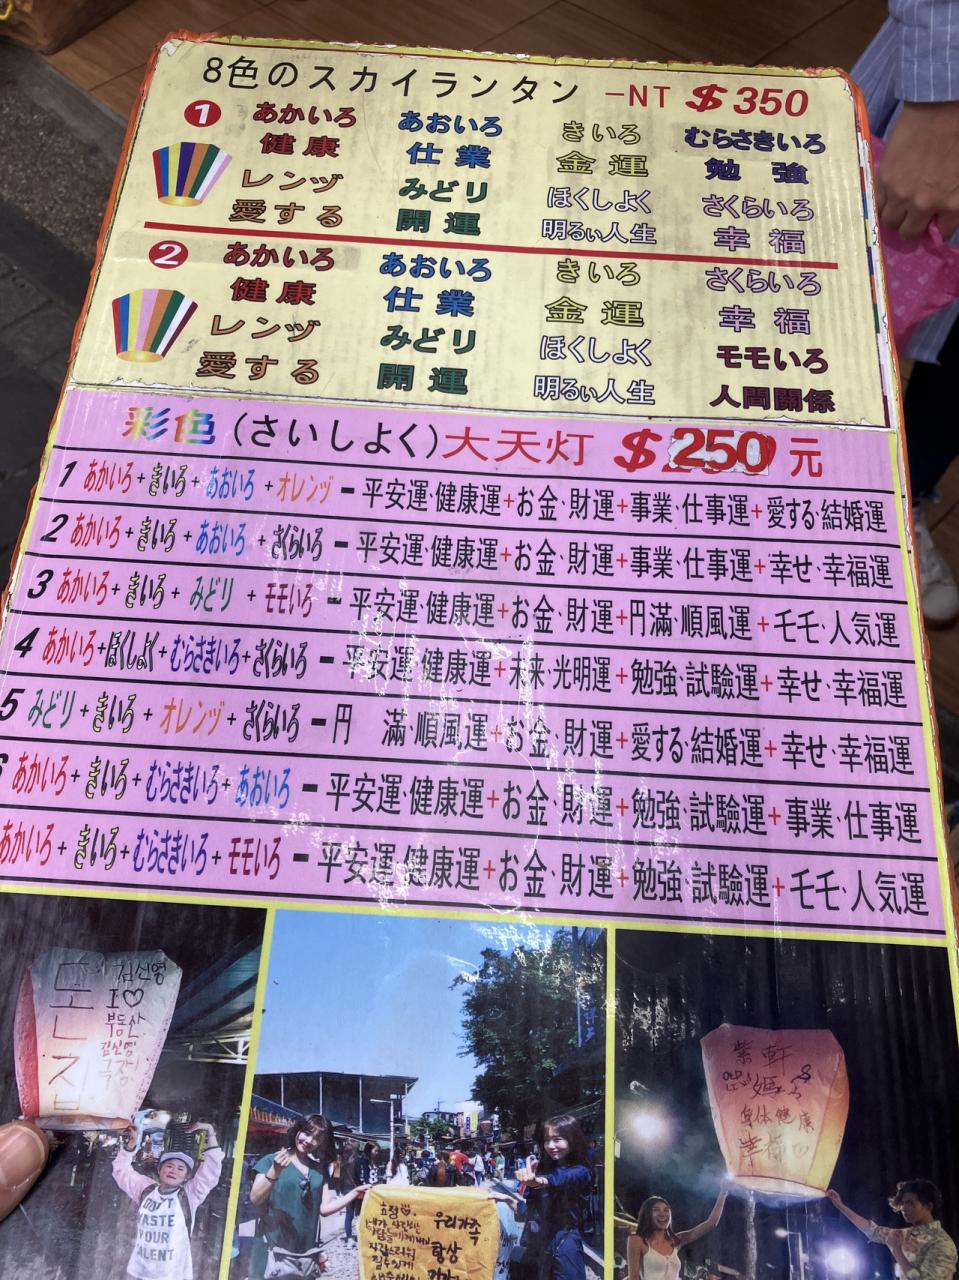 8色のスカイランタン －NT $350
1 あかいろ あおいろ きいろ むらさきいろ
健康 仕業 金運 勉強
レンヅ みどリ ほくしよく さくらいろ
愛する 開運 明るい人生 幸福
2 あかいろ あおいろ きいろ さくらいろ
健康 仕業 金運 幸福
レンヅ みどリ ほくしよく モモいろ
愛する 開運 明るい人生 人間關係
彩色(さいしよく)大天灯 $250元
1 あかいろ+きいろ+あおいろ+オレンヅ－平安運·健康運+お金·財運+事業·仕事運+愛する·結婚運
2 あかいろ+きいろ+あおいろ+さくらいろ－平安運·健康運+お金·財運+事業·仕事運+幸せ·幸福運
3 あかいろ+きいろ+みどリ+モモいろ－平安運·健康運+お金·財運+円滿·順風運+モモ·人気運
4 あかいろ+ほくしよく+むらさきいろ+さくらいろ－平安運·健康運+未来·光明運+勉強·試驗運+幸せ·幸福運
5 みどリ+きいろ+オレンヅ+さくらいろ－円 滿·順風運+お金·財運+愛する·結婚運+幸せ·幸福運
6 あかいろ+きいろ+むらさきいろ+あおいろ－平安運·健康運+お金·財運+勉強·試驗運+事業·仕事運
あかいろ+きいろ+むらさきいろ+モモいろ－平安運·健康運+お金·財運+勉強·試驗運+モモ·人気運
김신영
I♡
부동산
김신영
극장
DON'T
WASTE
YOUR
TALENT
우리가족
항상
紫軒
媽
身体健康
幸福